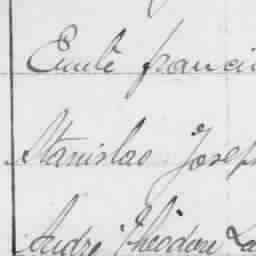 Emile franci
Stanislas Josep
André Théodore La